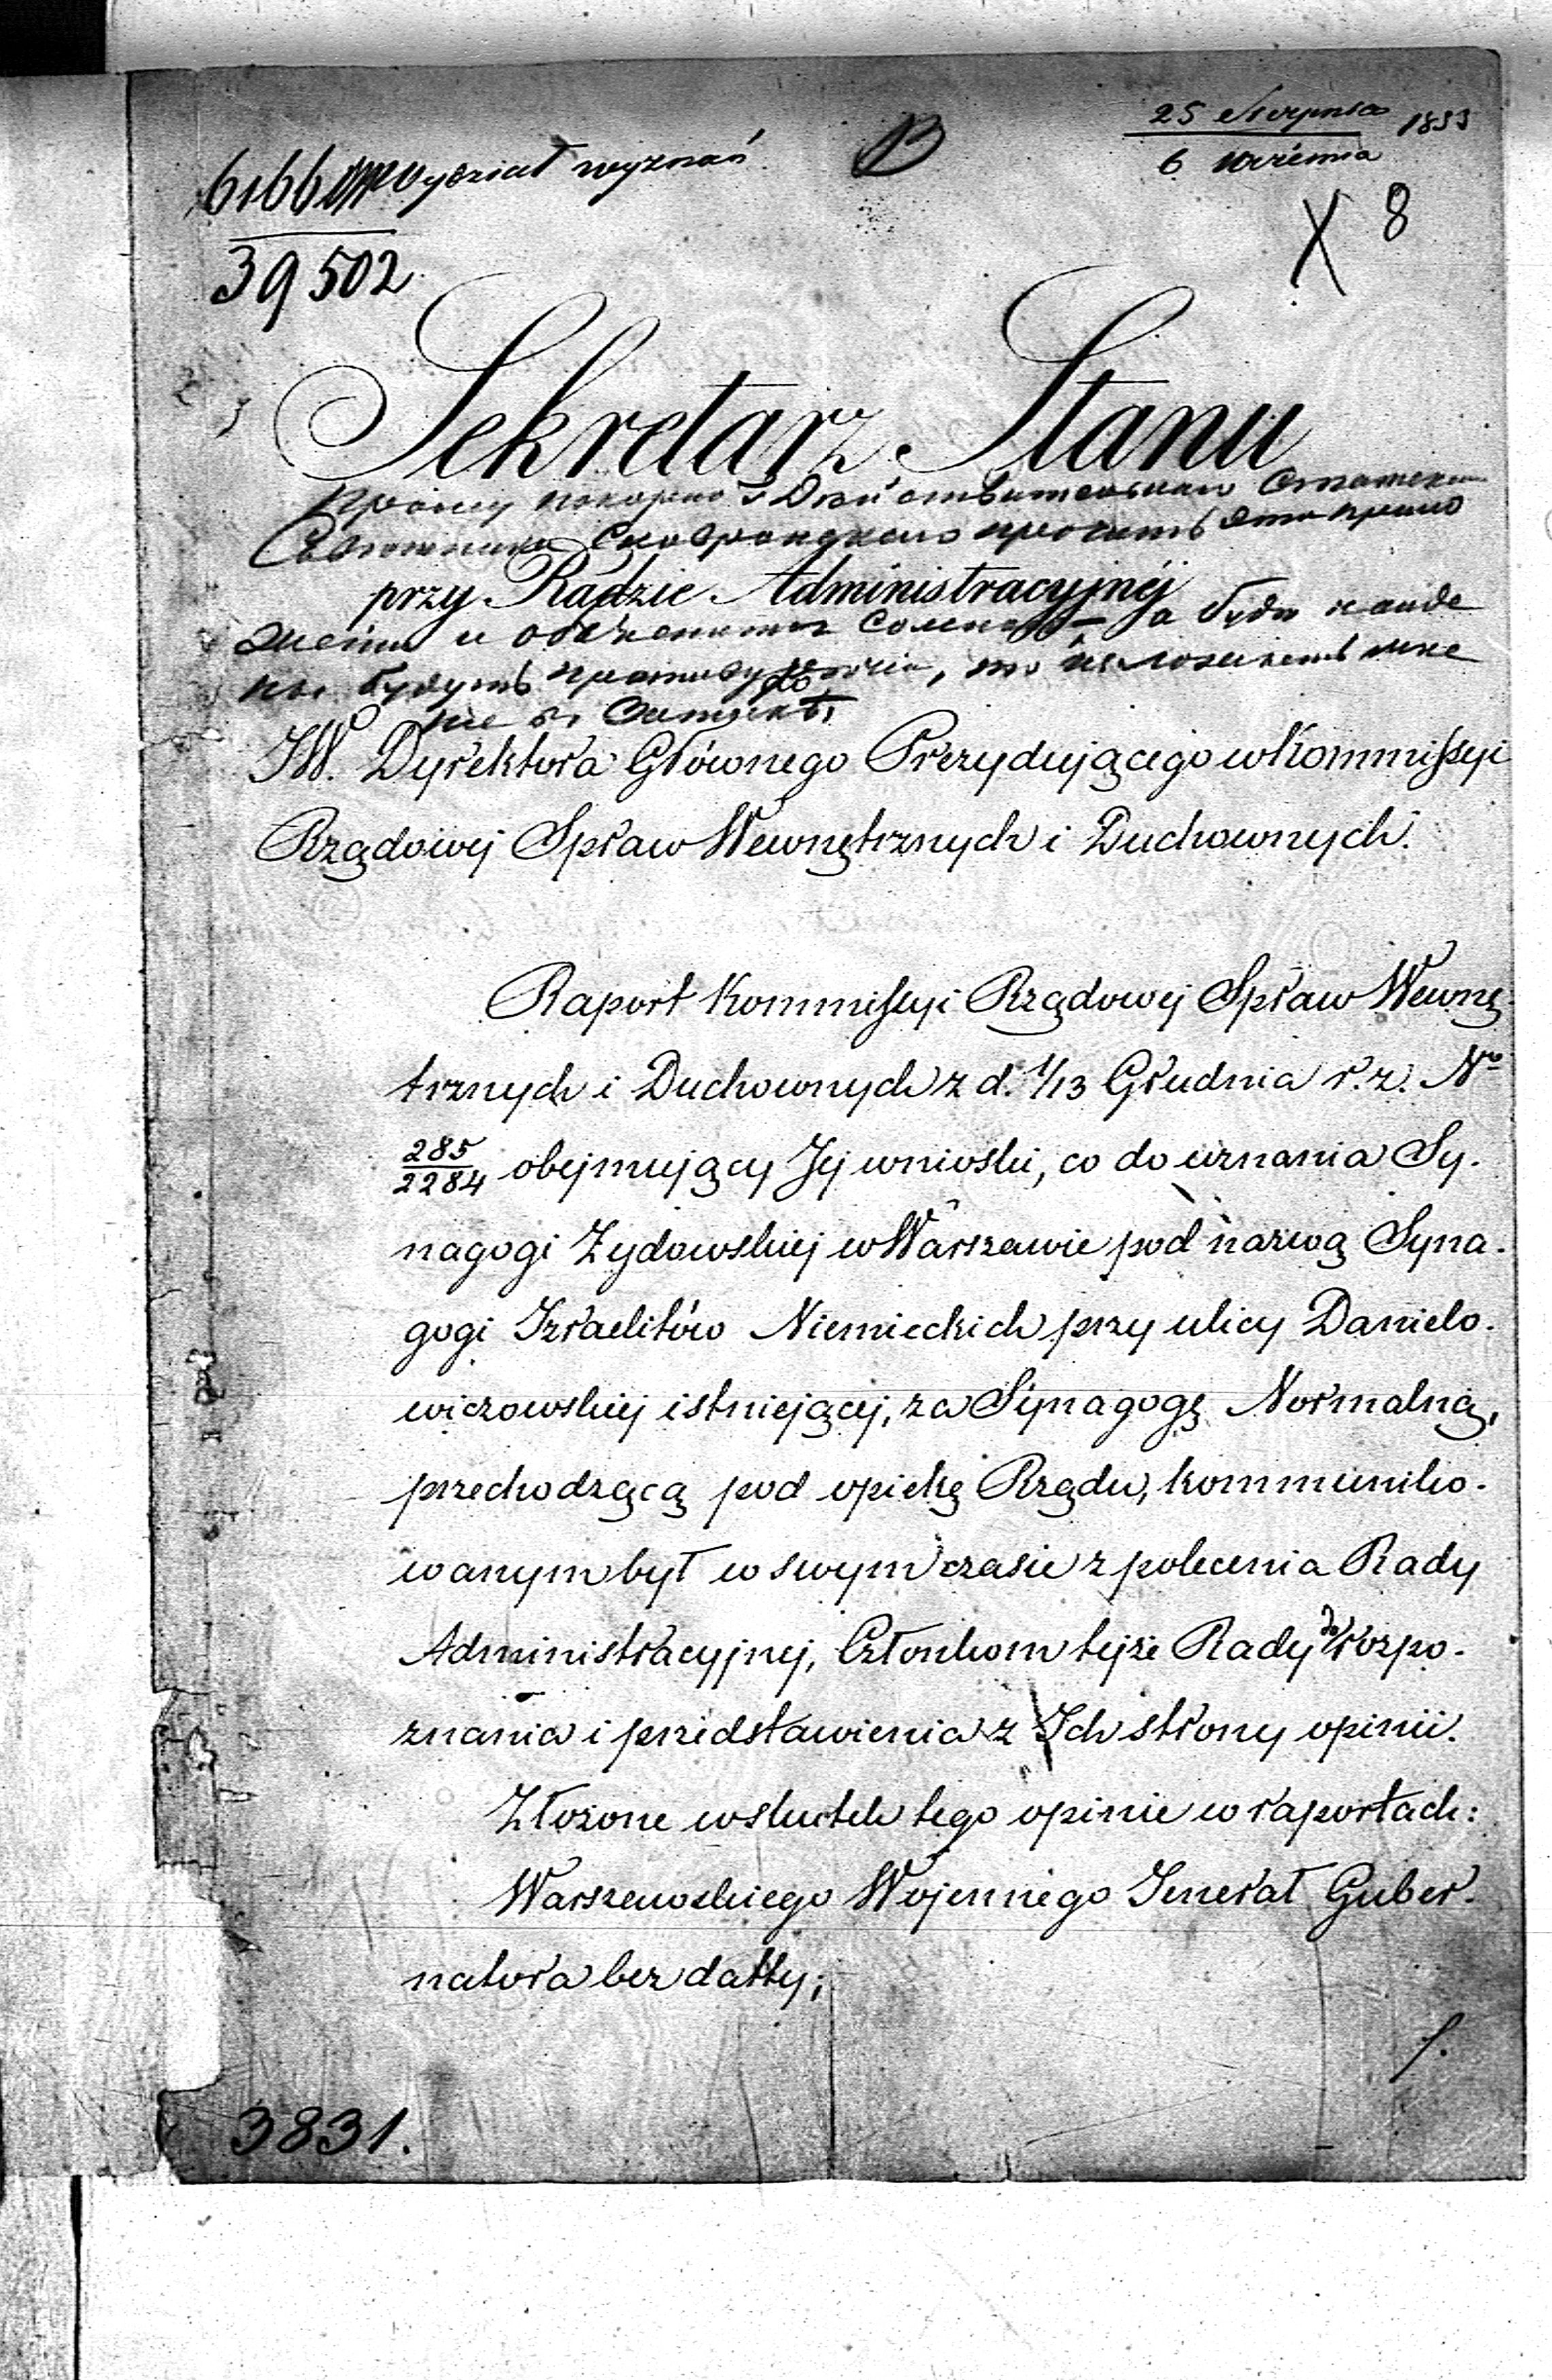 25 Sierpnia 1853
6 Września
B
6166 Wydział wyznań
39502
X 8
Sekretarz Stanu
Прошу покорно Г. Действительнаго Статскаго
Советника прочесть это
przy Radzie Administracyjnéj
и
будутъ, то
не
do
JW. Dyrektora Głównego Prezydującego w Kommissyi
Rządowej Spraw Wewnętrznych i Duchownych.
Raport Kommissyi Rządowej Spraw Wewnę-
trznych i Duchownych z d. 1/13 Grudnia r. z. No
285/2284 obejmujący Jej wnioski, co do uznania Sy-
nagogi Żydowskiej w Warszawie pod nazwą Syna-
gogi Izraelitów Niemieckich przy ulicy Danielo-
wiczowskiej istniejącej, za Synagogę Normalną,
przechodzącą pod opiekę Rządu, kommuniko-
wanym był w swym czasie z polecenia Rady
Administracyjnej, Członkom tejże Rady do rozpo-
znania i przedstawienia z Ich strony opinii.
Złożone wskutek tego opinie w raportach:
Warszawskiego Wojennego Jenerał Guber-
natora bez datty;
/.
3831.